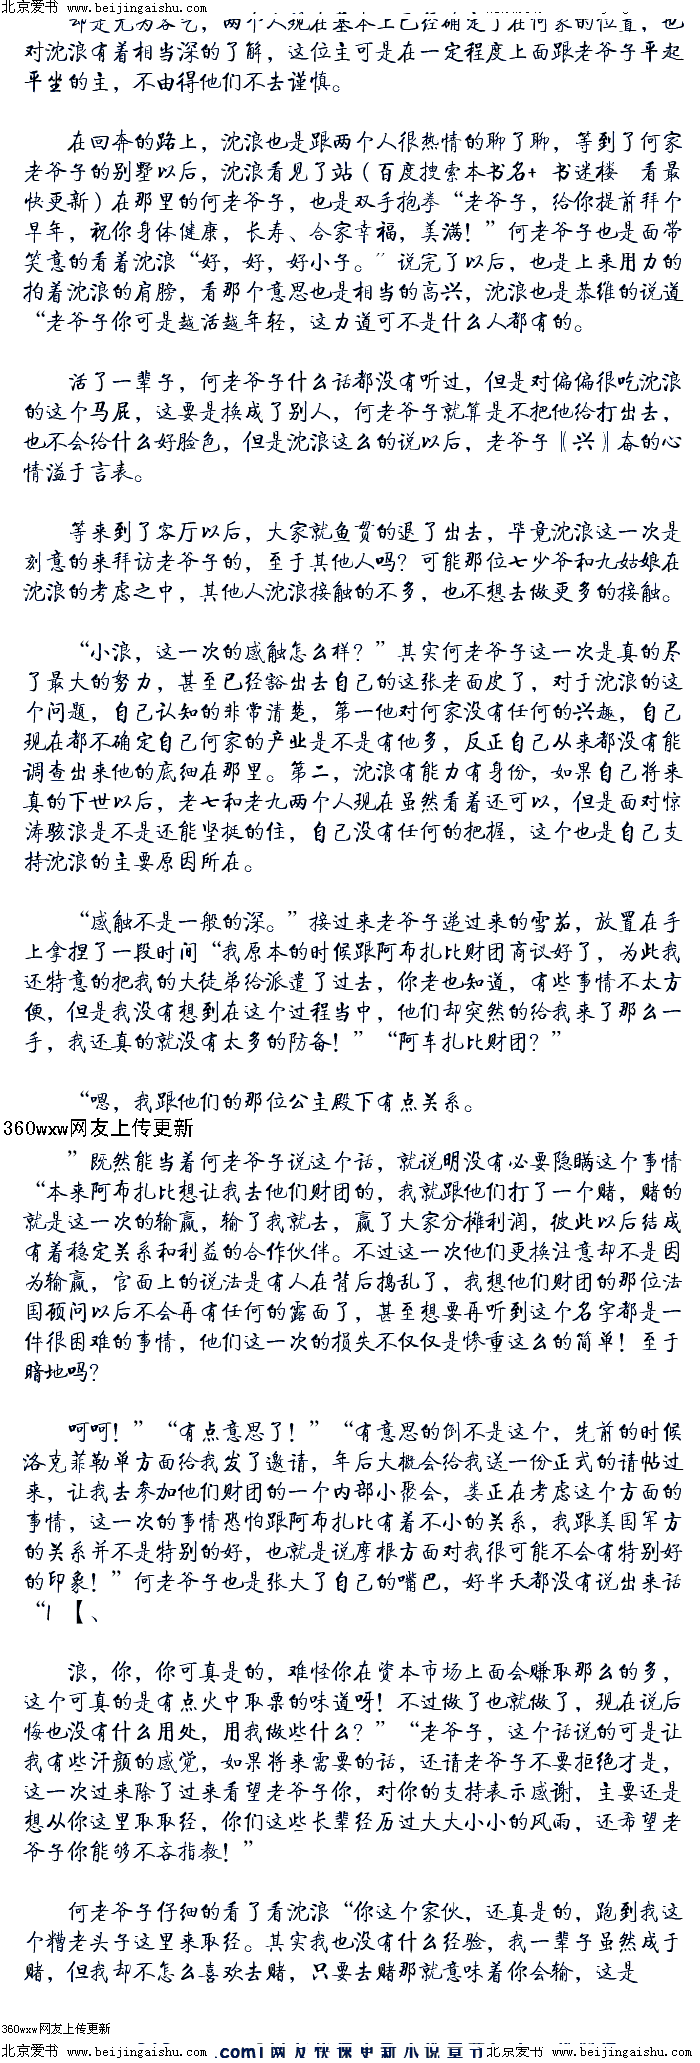 北京爱书 www.beijingaishu.com 北京爱书 www.beijingaishu.com
却是尤为客气，两个人现在基本上已经确定了在何家的位置，也
对沈浪有着相当深的了解，这位主可是在一定程度上面跟老爷子平起
平坐的主，不由得他们不去谨慎。
在回奔的路上，沈浪也是跟两个人很热情的聊了聊，等到了何家
老爷子的别墅以后，沈浪看见了站（百度搜索本书名+ 书迷楼 看最
快更新）在那里的何老爷子，也是双手抱拳“老爷子，给你提前拜个
早年，祝你身体健康，长寿、合家幸福，美满！”何老爷子也是面带
笑意的看着沈浪“好，好，好小子。”说完了以后，也是上来用力的
拍着沈浪的肩膀，看那个意思也是相当的高兴，沈浪也是恭维的说道
“老爷子你可是越活越年轻，这力道可不是什么人都有的。
活了一辈子，何老爷子什么话都没有听过，但是对偏偏很吃沈浪
的这个马屁，这要是换成了别人，何老爷子就算是不把他给打出去，
也不会给什么好脸色，但是沈浪这么的说以后，老爷子〖兴〗奋的心
情溢于言表。
等来到了客厅以后，大家就鱼贯的退了出去，毕竟沈浪这一次是
刻意的来拜访老爷子的，至于其他人吗？可能那位七少爷和九姑娘在
沈浪的考虑之中，其他人沈浪接触的不多，也不想去做更多的接触。
“小浪，这一次的感触怎么样？”其实何老爷子这一次是真的尽
了最大的努力，甚至已经豁出去自己的这张老面皮了，对于沈浪的这
个问题，自己认知的非常清楚，第一他对何家没有任何的兴趣，自己
现在都不确定自己何家的产业是不是有他多，反正自己从来都没有能
调查出来他的底细在那里。第二，沈浪有能力有身份，如果自己将来
真的下世以后，老七和老九两个人现在虽然看着还可以，但是面对惊
涛骇浪是不是还能坚挺的住，自己没有任何的把握，这个也是自己支
持沈浪的主要原因所在。
“感触不是一般的深。”接过来老爷子递过来的雪茄，放置在手
上拿捏了一段时间“我原本的时候跟阿布扎比财团商议好了，为此我
还特意的把我的大徒弟给派遣了过去，你老也知道，有些事情不太方
便，但是我没有想到在这个过程当中，他们却突然的给我来了那么一
手，我还真的就没有太多的防备！”“阿车扎比财团？”
“嗯，我跟他们的那位公主殿下有点关系。
360wxw网友上传更新
”既然能当着何老爷子说这个话，就说明没有必要隐瞒这个事情
“本来阿布扎比想让我去他们财团的，我就跟他们打了一个赌，赌的
就是这一次的输赢，输了我就去，赢了大家分摊利润，彼此以后结成
有着稳定关系和利益的合作伙伴。不过这一次他们更换注意却不是因
为输赢，官面上的说法是有人在背后捣乱了，我想他们财团的那位法
国顾问以后不会再有任何的露面了，甚至想要再听到这个名字都是一
件很困难的事情，他们这一次的损失不仅仅是惨重这么的简单！至于
暗地吗？
呵呵！”“有点意思了！”“有意思的倒不是这个，先前的时候
洛克菲勒单方面给我发了邀请，年后大概会给我送一份正式的请帖过
来，让我去参加他们财团的一个内部小聚会，娄正在考虑这个方面的
事情，这一次的事情恐怕跟阿布扎比有着不小的关系，我跟美国军方
的关系并不是特别的好，也就是说摩根方面对我很可能不会有特别好
的印象！”何老爷子也是张大了自己的嘴巴，好半天都没有说出来话
“l 【、
浪，你，你可真是的，难怪你在资本市场上面会赚取那么的多，
这个可真的是有点火中取栗的味道呀！不过做了也就做了，现在说后
悔也没有什么用处，用我做些什么？”“老爷子，这个话说的可是让
我有些汗颜的感觉，如果将来需要的话，还请老爷子不要拒绝才是，
这一次过来除了过来看望老爷子你，对你的支持表示感谢，主要还是
想从你这里取取经，你们这些长辈经历过大大小小的风雨，还希望老
爷子你能够不吝指教！”
何老爷子仔细的看了看沈浪“你这个家伙，还真是的，跑到我这
个糟老头子这里来取经。其实我也没有什么经验，我一辈子虽然成于
赌，但我却不怎么喜欢去赌，只要去赌那就意味着你会输，这是
360wxw网友上传更新
北京爱书 www.beijingaishu.com 北京爱书 www.beijingaishu.com